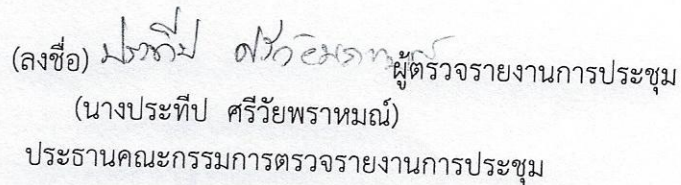 (ลงชื่อ) ประทีป ผู้ตรวจรายงานการประชุม
(นางประทีป ศรีวัยพราหมณ์)
ประธานคณะกรรมการตรวจรายงานการประชุม